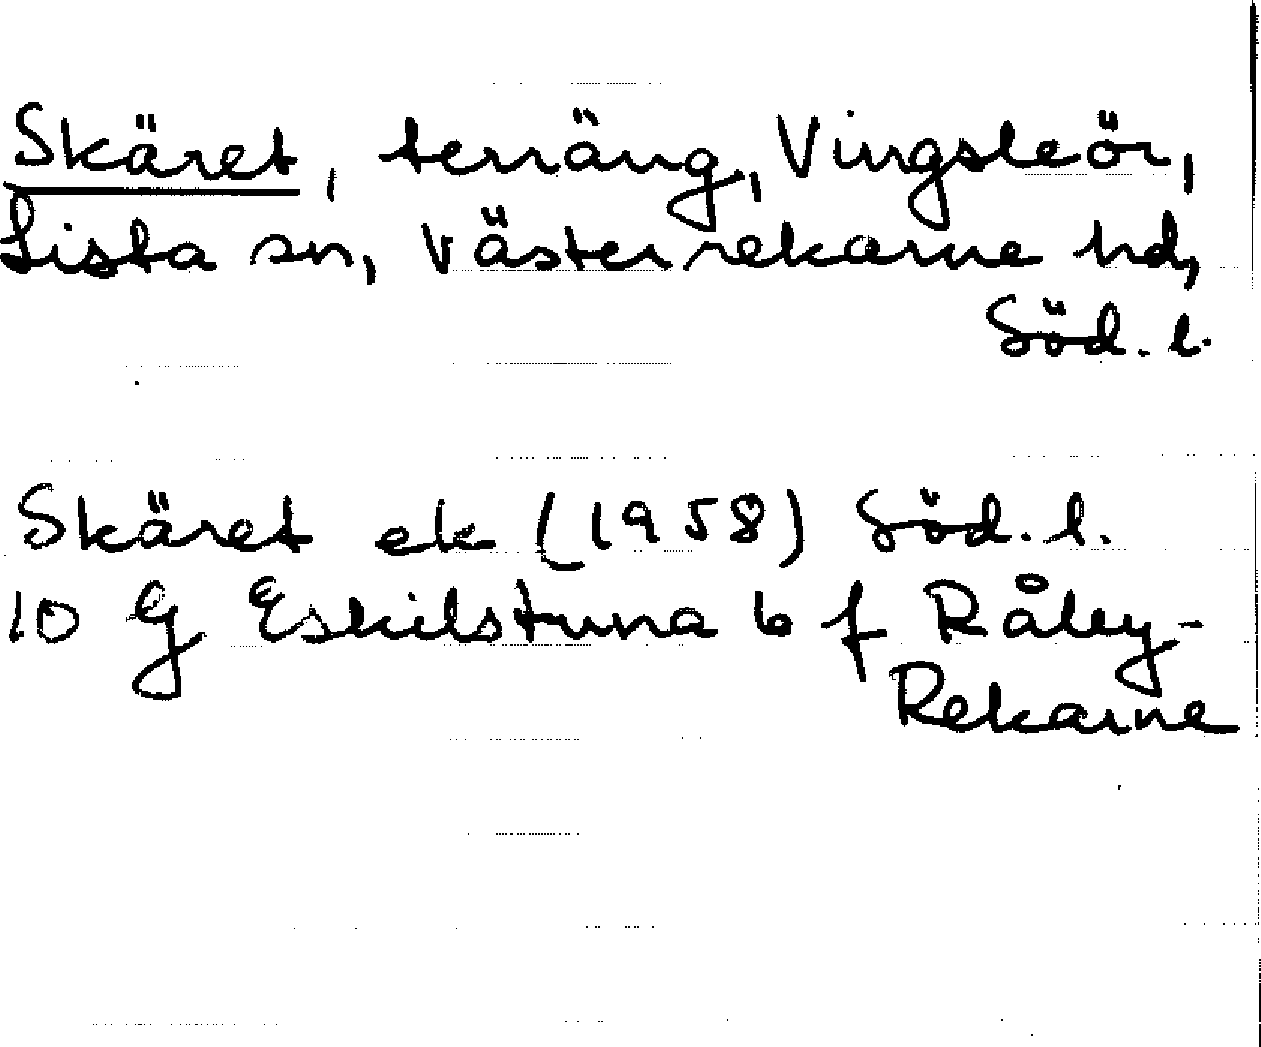 Skäret, terräng, Vingsleör,
Lista sn, Västerrekarne hd,
Söd. l.
Skäret ek (1958) Söd. l.
10 G Eskilstuna 6 f Råby-
Rekarne